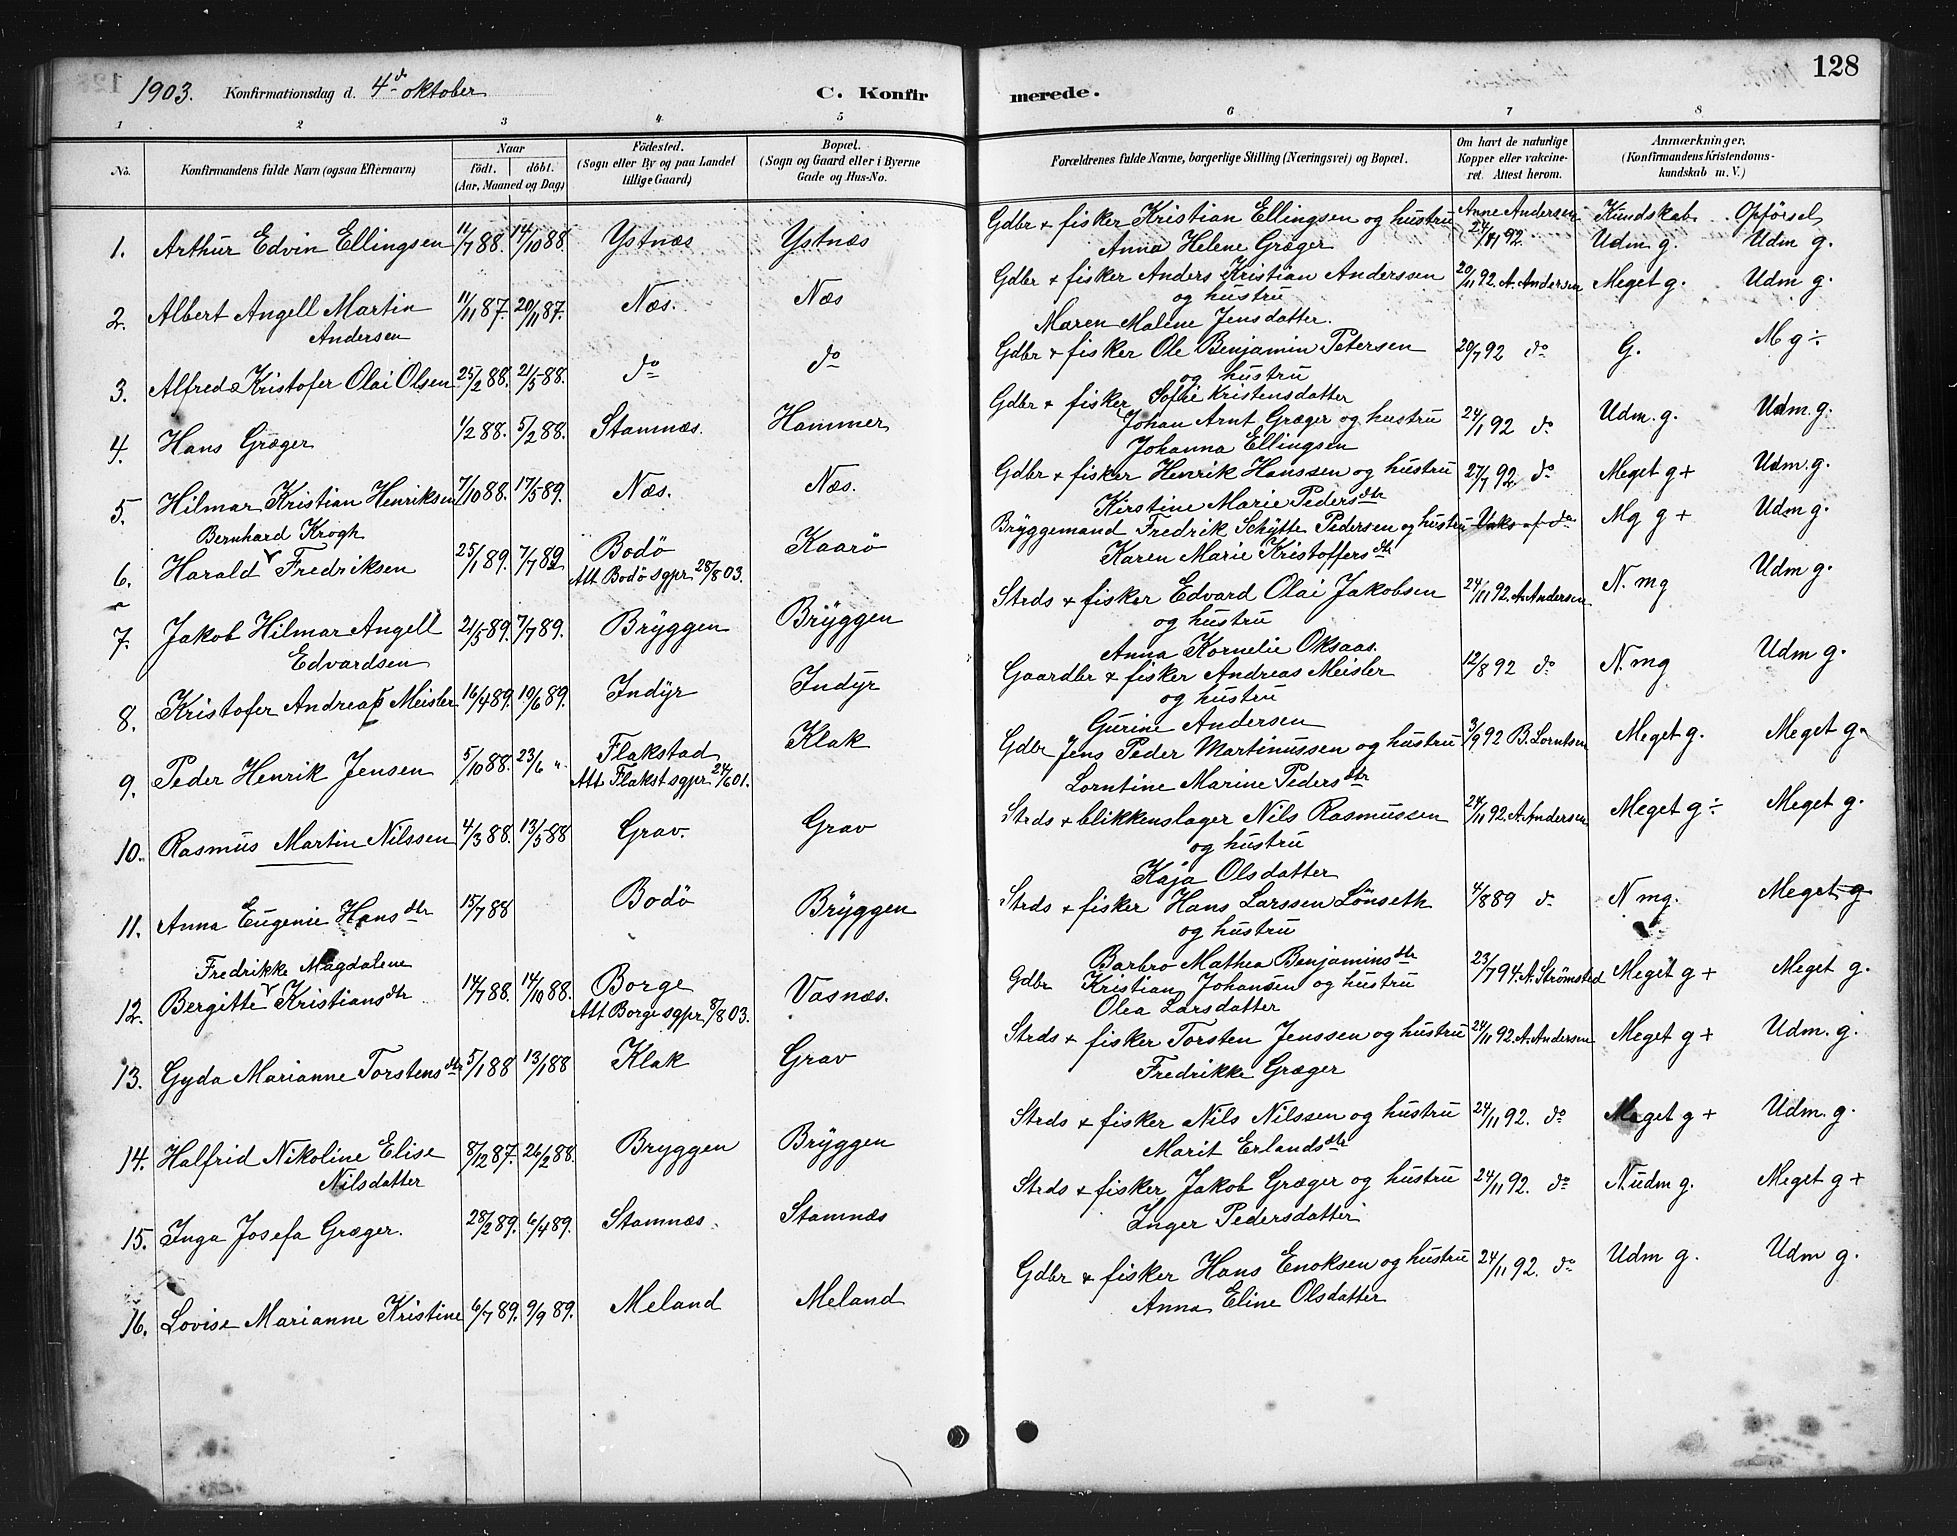 128
1903. Konfirmationsdag d. 4de oktober C. Konfirmerede.
1 2 3 4 5 6 7 8
No. Konfirmandens fulde Navn (ogsaa Efternavn) Naar født. døbt. (Aar, Maaned og Dag) Fødested. (Sogn eller By og paa Landet tillige Gaard) Bopæl. (Sogn og Gaard eller i Byerne Gade og Hus-No. Forældrenes fulde Navne, borgerlige Stilling (Næringsvei) og Bopæl. Om havt de naturlige Kopper eller vakcineret. Attest herom. Anmærkninger. (Konfirmandens Kristendomskundskab m. V.)
Kundskab. Opførsel
1. Arthur Edvin Ellingsen 11/7 88. 14/10 88. Ystnæs Ystnæs Gdbr & fisker Kristian Ellingsen og hustru Anne Andersen
Anna Helene Græger 92. Udm g. Udm g.
2. Albert Angell Martin 11/11 87. 20/11 87. Næs. Næs Gdbr & fisker Anders Kristian Anderssen 20/11 92. A. Andersen Meget g. Udm g.
Andersen og hustru
Maren Malene Jensdatter.
3. Alfred Kristofer Olai Olsen 25/2 88. 21/5 88. do do Gdbr & fisker Ole Benjamin Petersen 20/7 92 do G. M g ÷
og hustru
Sofie Kristensdatter
4. Hans Græger 1/2 88. 5/2 88. Stamnæs. Hammer Gdbr & fisker Johan Arnt Græger og hustru 24/1 92 do Udm. g. Udm. g.
Johanna Ellingsen
5. Hilmar Kristian Henriksen 7/10 88. 17/5 89. Næs. Næs. Gdbr & fisker Henrik Hanssen og hustru 27/7 92. do Meget g + Udm. g.
Kirstine Marie Pedersdtr
Bernhard Krogh
6. Harald Fredriksen 25/1 89. 7/7 89 Bodø Kaarø Bryggemand Fredrik Schytte Pedersen og hustru Vaks af do Mg g + Udm g.
Att Bodø sgpr 28/8 03. Karen Marie Kristoffersdtr
7. Jakob Hilmar Angell 21/5 89. 7/7 89. Bryggen Bryggen Strds & fisker Edvard Olai Jakobsen 24/11 92. A. Andersen N. mg Udm g.
Edvardsen og hustru
Anna Kornelie Oksaas.
8. Kristofer Andreas Meisler 16/4 89. 19/6 89. Indyr Indyr Gaardbr & fisker Andreas Meisler 12/8 92 do N. mg Udm g.
og hustru
Gurine Andersen
9. Peder Henrik Jensen 5/10 88. 23/6 " Flakstad Klak Gdbr Jens Peder Martinussen og hustru 3/9 92 B. Lorntsen Meget g. Meget g.
Att Flakst sgpr 24/6 01. Lorntine Marine Pedersdtr
10. Rasmus Martin Nilssen 4/3 88. 13/5 88 Grav. Grav Strds & blikkenslager Nils Rasmussen 24/11 92. A. Andersen Meget g ÷ Meget g.
og hustru
Kaja Olsdatter
11. Anna Eugenie Hansdtr 15/7 88 Bodø Bryggen Strds & fisker Hans Larssen Lønseth 4/8 89 do N mg. Meget g
og hustru
Barbro Mathea Benjaminsdtr
Fredrikke Magdalene
12. Bergitte Kristiansdtr 14/7 88. 14/10 88. Borge Vasnæs. Gdbr Kristian Johansen og hustru 23/7 94. A. Strømsted Meget g + Meget g.
Att Borge sgpr 8/8 03. Olea Larsdatter
13. Gyda Marianne Torstensdtr 5/1 88 13/1 88 Klak Grav Strds & fisker Torsten Jenssen og hustru 24/11 92. A. Andersen Meget g + Udm. g.
Fredrikke Græger
14. Halfrid Nikoline Elise 8/12 87. 26/2 88. Bryggen Bryggen Strds & fisker Nils Nilssen og hustru 24/11 92. do Meget g + Udm. g.
Nilsdatter Marit Erlandsdtr
15. Inga Josefa Græger. 28/2 89. 6/4 89. Stamnæs. Stamnæs Strds & fisker Jakob Græger og hustru 24/11 92. do N. udm g. Meget g +
Inger Pedersdatter
16. Lovise Marianne Kristine 6/7 89. 9/9 89. Meland Meland Gdbr & fisker Hans Enoksen og hustru 24/11 92. do Udm g. Udm g.
Anna Eline Olsdatter